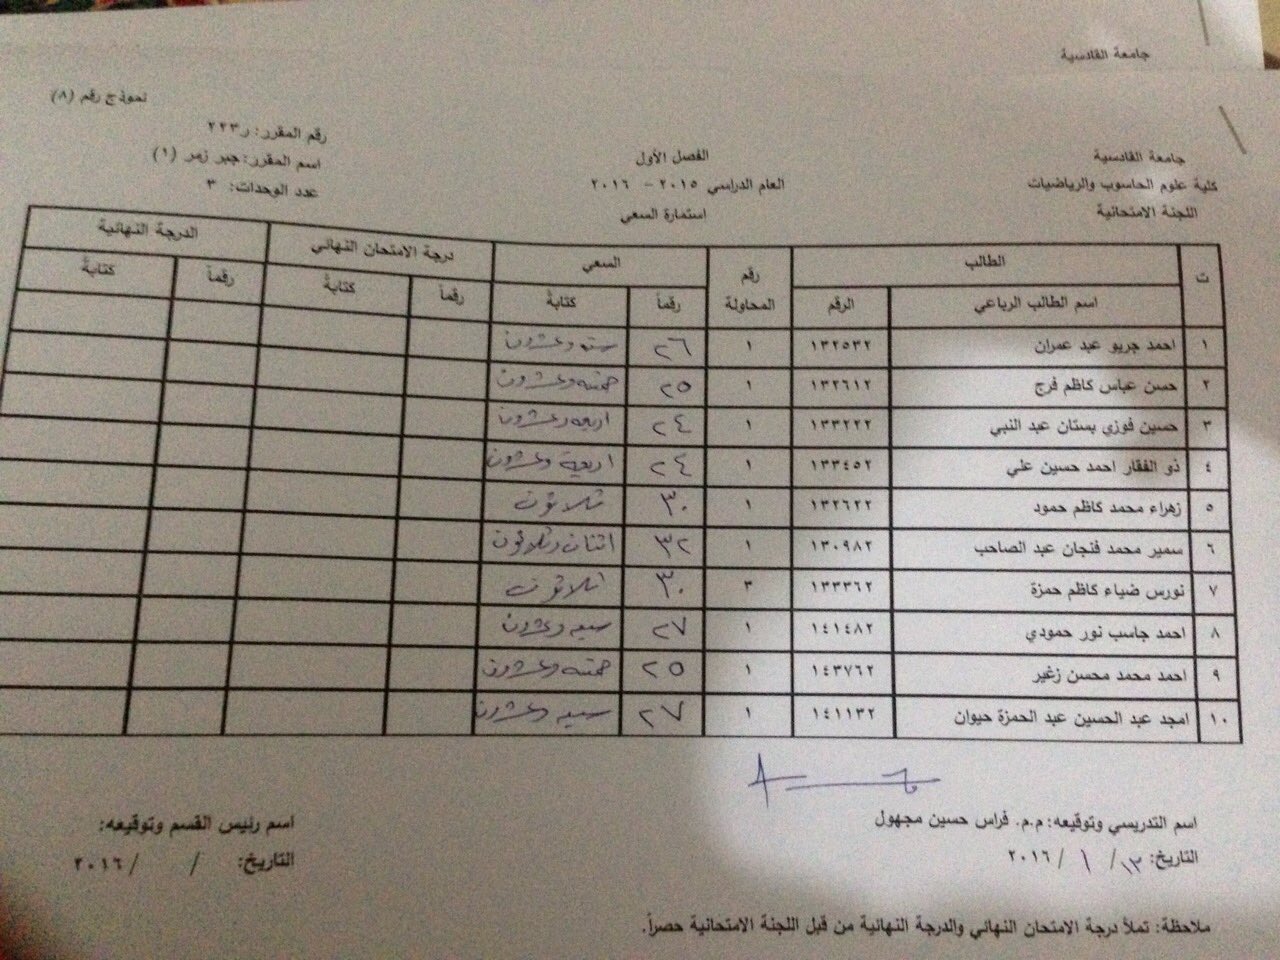 جامعة القادسية
نموذج رقم (٨)
جامعة القادسية
كلية علوم الحاسوب والرياضيات
اللجنة الامتحانية
الفصل الأول
العام الدراسي ٢٠١٥ - ٢٠١٦
استمارة السعي
رقم المقرر: ر٢٢٣
اسم المقرر: جبر زمر (١)
عدد الوحدات: ٣
ت الطالب رقم المحاولة السعي درجة الامتحان النهائي الدرجة النهائية
اسم الطالب الرباعي الرقم رقماً كتابةً رقماً كتابةً رقماً كتابةً
١ احمد جريو عبد عمران ١٣٢٥٣٢ ١ ٢٦ سته وعشرون
٢ حسن عباس كاظم فرج ١٣٢٦١٢ ١ ٢٥ خمسه وعشرون
٣ حسين فوزي بستان عبد النبي ١٣٣٢٢٢ ١ ٢٤ اربعه وعشرون
٤ ذو الفقار احمد حسين علي ١٣٣٤٥٢ ١ ٢٤ اربعة وعشرون
٥ زهراء محمد كاظم حمود ١٣٢٦٢٢ ١ ٣٠ ثلاثون
٦ سمير محمد فنجان عبد الصاحب ١٣٠٩٨٢ ١ ٣٢ اثنان وثلاثون
٧ نورس ضياء كاظم حمزة ١٣٣٣٦٢ ٣ ٣٠ ثلاثون
٨ احمد جاسب نور حمودي ١٤١٤٨٢ ١ ٢٧ سبعه وعشرون
٩ احمد محمد محسن زغير ١٤٣٧٦٢ ١ ٢٥ خمسه وعشرون
١٠ امجد عبد الحسين عبد الحمزة حيوان ١٤١١٣٢ ١ ٢٧ سبعه وعشرون
اسم التدريسي وتوقيعه: م.م. فراس حسين مجهول
التاريخ: ١٣ / ١ / ٢٠١٦
اسم رئيس القسم وتوقيعه:
التاريخ: / / ٢٠١٦
ملاحظة: تملأ درجة الامتحان النهائي والدرجة النهائية من قبل اللجنة الامتحانية حصراً.